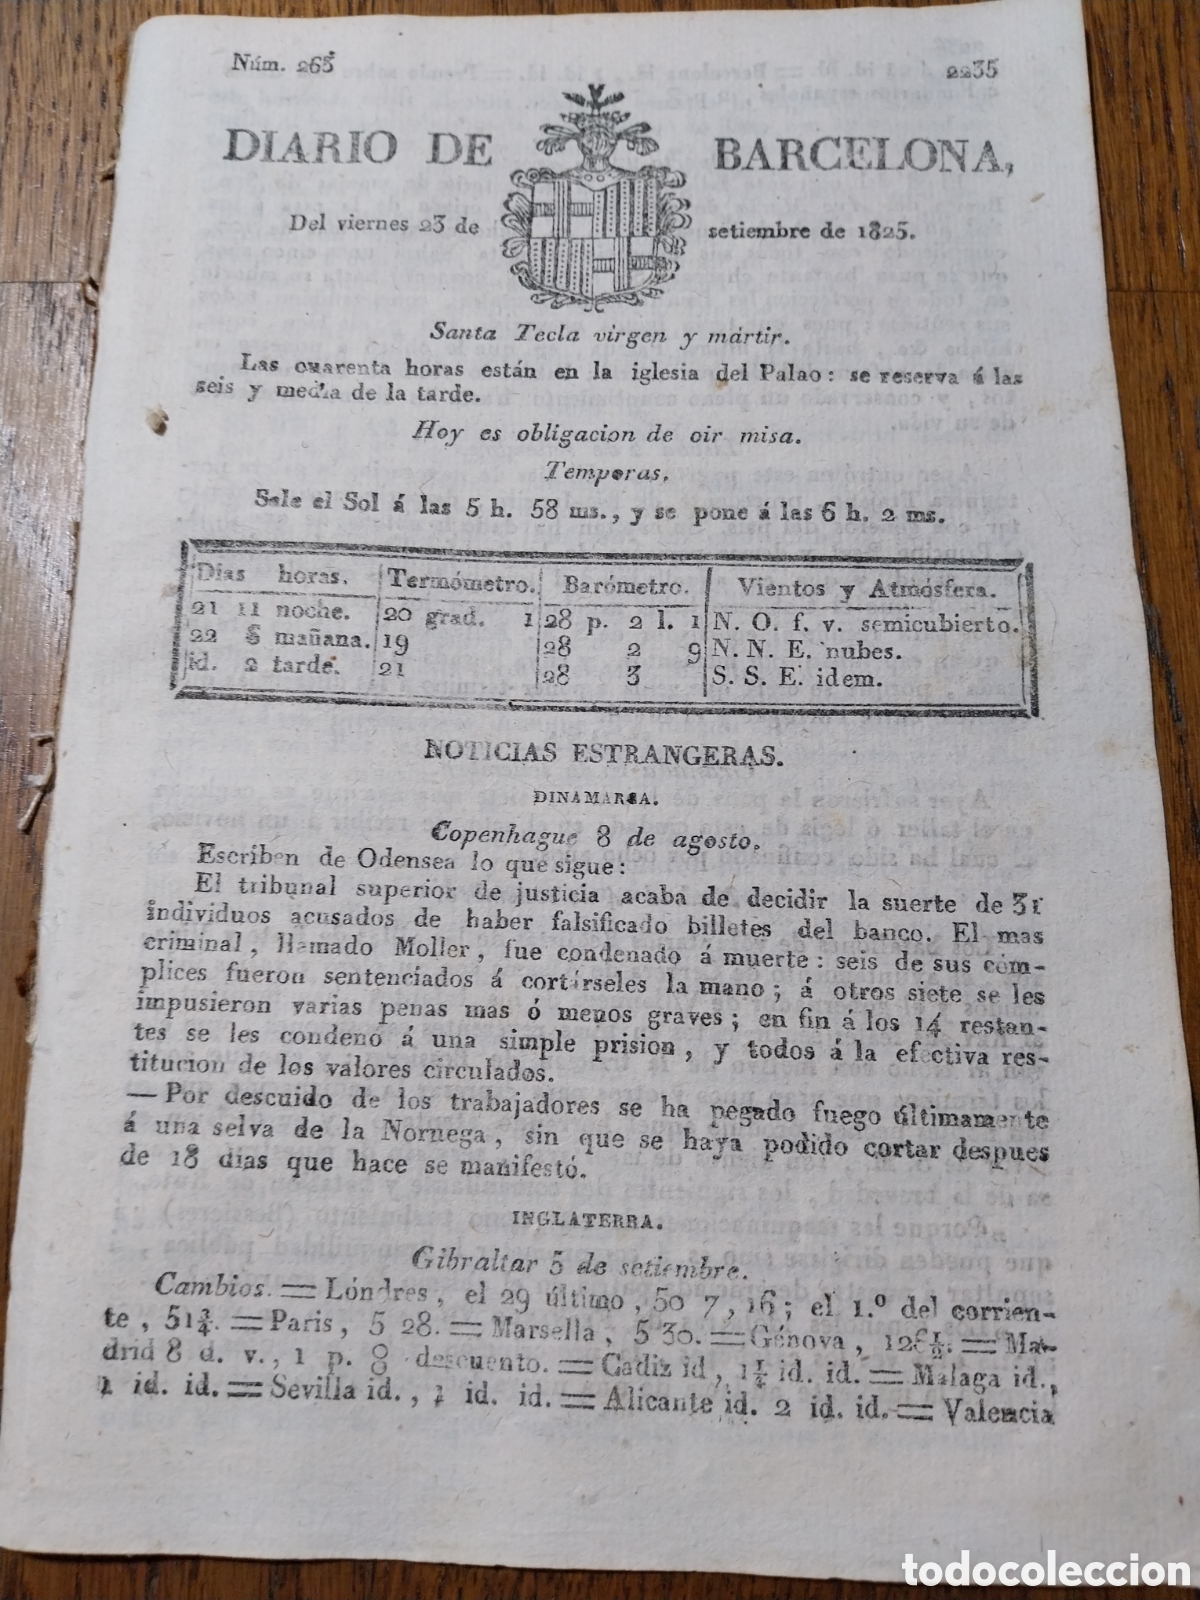 Núm. 265
2235
DIARIO DE BARCELONA,
Del viernes 23 de setiembre de 1825.
Santa Tecla virgen y mártir.
Las cuarenta horas están en la iglesia del Palao: se reserva á las
seis y media de la tarde.
Hoy es obligacion de oir misa.
Temporas.
Sale el Sol á las 5 h. 58 ms., y se pone á las 6 h. 2 ms.
Dias horas. Termómetro. Barómetro. Vientos y Atmósfera.
21 11 noche. 20 grad. 1 28 p. 2 l. 1 N. O. f. v. semicubierto.
22 6 mañana. 19 28 2 9 N. N. E. nubes.
id. 2 tarde. 21 28 3 S. S. E. idem.
NOTICIAS ESTRANGERAS.
DINAMARCA.
Copenhague 8 de agosto.
Escriben de Odensea lo que sigue:
El tribunal superior de justicia acaba de decidir la suerte de 31
individuos acusados de haber falsificado billetes del banco. El mas
criminal, llamado Moller, fue condenado á muerte: seis de sus cóm-
plices fueron sentenciados á cortárseles la mano; á otros siete se les
impusieron varias penas mas ó menos graves; en fin á los 14 restan-
tes se les condenó á una simple prision, y todos á la efectiva res-
titucion de los valores circulados.
— Por descuido de los trabajadores se ha pegado fuego últimamente
á una selva de la Noruega, sin que se haya podido cortar despues
de 18 dias que hace se manifestó.
INGLATERRA.
Gibraltar 5 de setiembre.
Cambios. = Lóndres, el 29 último, 50 7, 16; el 1.º del corrien-
te, 51 3/4. = Paris, 5 28. = Marsella, 5 30. = Génova, 126 1/2. = Ma-
drid 8 d. v., 1 p. 8 descuento. = Cadiz id, 1 1/4 id. id. = Malaga id.,
1 id. id. = Sevilla id., 1 id. id. = Alicante id. 2 id. id. = Valencia
todocoleccion